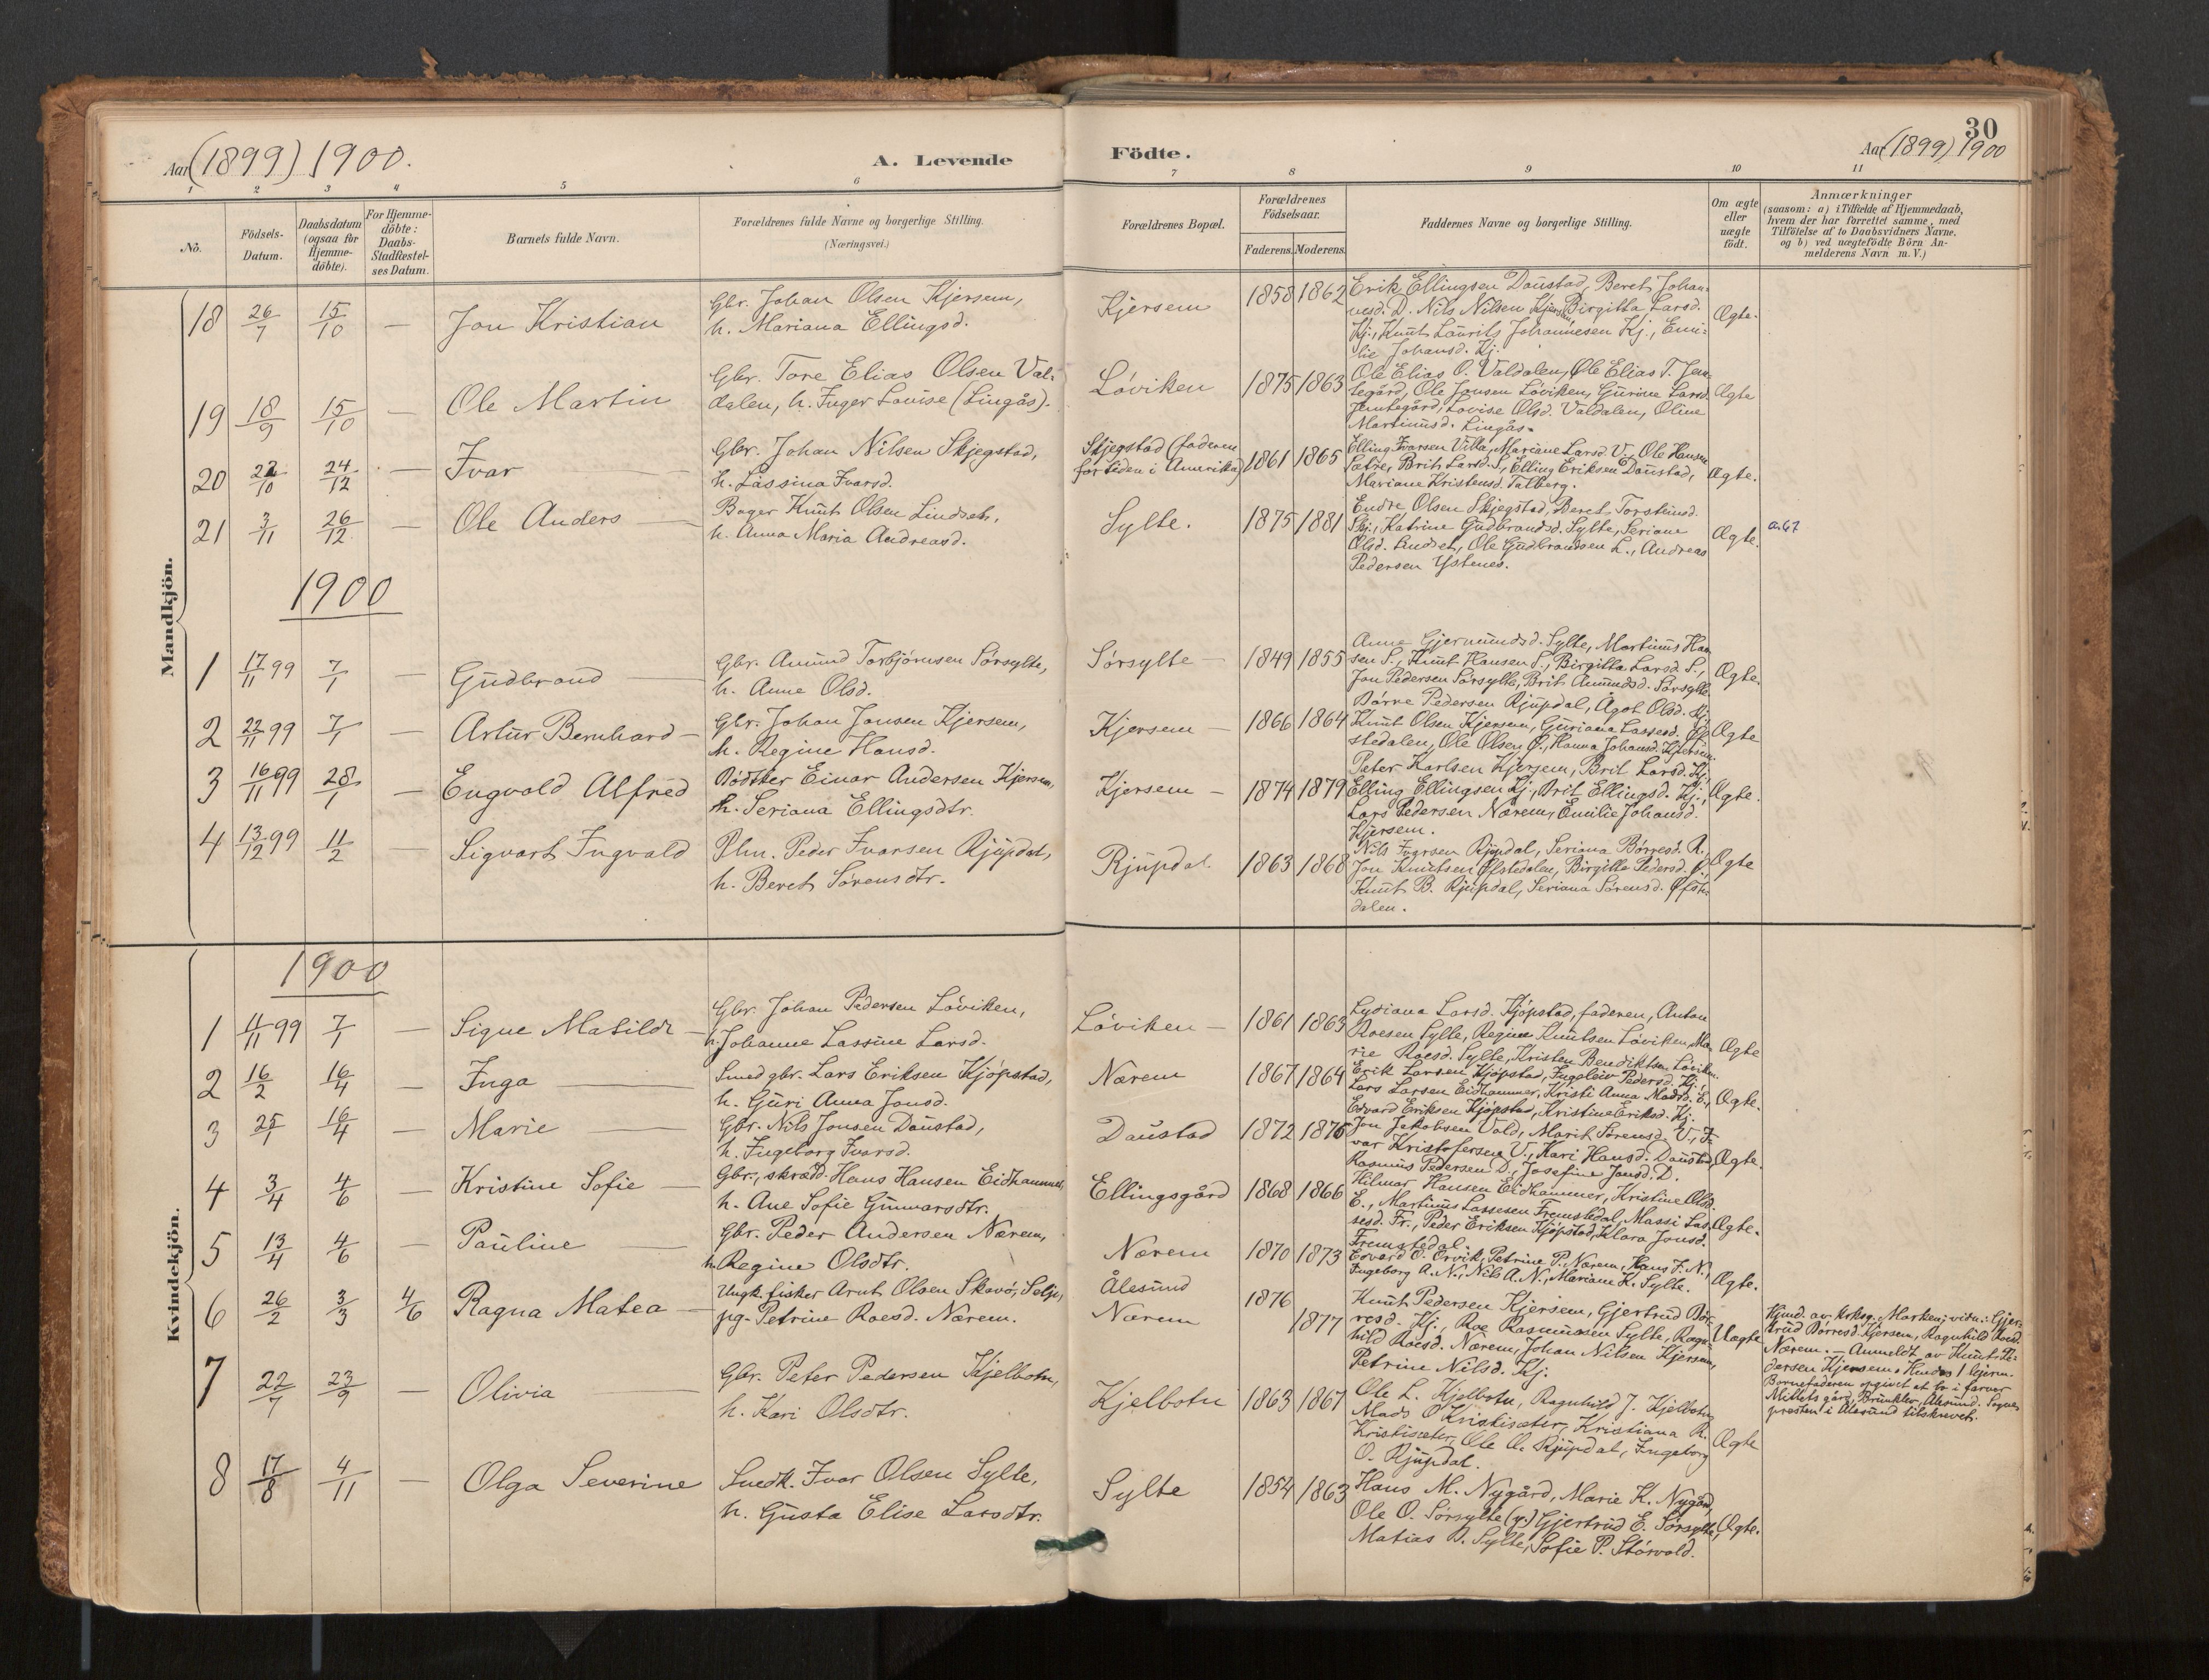 30
Aar (1899) 1900.
A. Levende
Födte.
Aar (1899) 1900
1 2 3 4 5 6 7 8 9 10 11
No.
Födsels-Datum.
Daabsdatum (ogsaa för Hjemme-döbte).
For Hjemme-döbte: Daabs-Stadfæstel-ses Datum.
Barnets fulde Navn.
Forældrenes fulde Navne og borgerlige Stilling.
(Næringsvei.)
Forældrenes Bopæl.
Forældrenes Födselsaar.
Faderens. Moderens.
Faddernes Navne og borgerlige Stilling.
Om ægte eller uægte födt.
Anmærkninger
(saasom: a) i Tilfælde af Hjemmedaab,
hvem der har forrettet samme, med
Tilföielse af to Daabsvidners Navne,
og b) ved uægtefödte Börn An-
melderens Navn m. V.)
Mandkjön.
18 26/7 15/10 — Jon Kristian
Gbr. Johan Olsen Kjersem,
h. Mariana Ellingsd.
Kjersem 1858 1862
Erik Ellingsen Daustad, Beret Johan-
nesd. D. Nils Nilsen Kjersem, Birgitta Larsd.
Kj., Knut Laurits Johannesen Kj., Emi-
lie Johansd. Kj.
Ægte.
19 18/9 15/10 — Ole Martin
Gbr. Tore Elias Olsen Val-
dalen, h. Inger Louise (Lingås).
Löviken 1875 1863
Ole Elias O. Valdalen, Ole Elias T. Jem-
tegård, Ole Jonsen Löviken, Gurine Larsd.
Jemtegård, Lovise Olsd. Valdalen, Oline
Martinusd. Lingås.
Ægte
20 22/10 24/12 — Ivar
Gbr. Johan Nilsen Skjegstad,
h. Lassina Ivarsd.
Skjegstad (faderen
for tiden i Amerika) 1861 1865
Elling Ivarsen Villa, Mariane Larsd. V., Ole Hansen
Sætre, Brit Larsd. S., Elling Eriksen Daustad,
Mariane Kristensd. Talberg.
Ægte.
21 3/11 26/12 — Ole Anders
Bager Knut Olsen Lindset,
h. Anna Maria Andreasd.
Sylte. 1875 1881
Endre Olsen Skjegstad, Beret Torsteinsd.
Ski, Katrine Gudbrandsd. Sylte, Seriane
Olsd. Lindset, Ole Gudbrandsen L., Andreas
Pedersen Ystenes.
Ægte.
a. 67
1900
1 17/11 99 7/1 — Gudbrand
Gbr. Amund Torbjörnsen Sörsylte,
h. Anne Olsd.
Sörsylte — 1849 1855
Anne Gjermundsd. Sylte, Martinus Han-
sen S., Knut Hansen S., Birgitta Larsd. S.,
Jon Pedersen Sörsylte, Brit Amundsd. Sörsylte.
Ægte.
2 22/11 99 7/1 — Artur Bernhard
Gbr. Johan Jonsen Kjersem,
h. Regine Hansd.
Kjersem — 1866 1864
Börre Pedersen Rjupdal, Ågot Olsd. Kj.,
Knut Olsen Kjersem, Guriana Lassesd. Øf-
stedalen, Ole Olsen Ø., Hanna Johansd. Kjersem.
Ægte
3 16/11 99 28/1 — Engvald Alfred
Bödtker Einar Andersen Kjersem,
h. Seriana Ellingsdtr.
Kjersem — 1874 1879
Peter Karlsen Kjersem, Brit Larsd. Kj.,
Elling Ellingsen Kj., Brit Ellingsd. Kj.,
Lars Pedersen Nærem, Emilie Johansd.
Kjersem.
Ægte.
4 13/12 99 11/2 — Sigvart Ingvald
Plm. Peder Ivarsen Rjupdal,
h. Beret Sörensdtr.
Rjupdal 1863 1868
Nils Ivarsen Rjupdal, Seriana Börresd. R.,
Jon Knutsen Øfstedalen, Birgitte Pedersd. Ø.,
Knut B. Rjupdal, Seriana Sörensd. Øfste-
dalen.
Ægte
Kvindekjön.
1900
1 11/11 99 7/1 — Signe Matilde
Gbr. Johan Pedersen Löviken,
h. Johanne Lassine Larsd.
Löviken — 1861 1863
Lydiana Larsd. Kjöpstad, faderen, Anton
Roesen Sylte, Regine Knutsen Löviken, Ma-
rie Roesd. Sylte, Kristen Bendiktsen Löviken.
Ægte
2 16/2 16/4 — Inga
Smed gbr. Lars Eriksen Kjöpstad,
h. Guri Anna Jonsd.
Nærem 1867 1864
Erik Larsen Kjöpstad, Ingeleiv Pedersd. Kj.,
Lars Larsen Eidhammer, Kristi Anna Madsd. E.,
Edvard Eriksen Kjöpstad, Kristine Eriksd. Kj.
Ægte.
3 25/1 16/4 — Marie
Gbr. Nils Jonsen Daustad,
h. Ingeborg Ivarsd.
Daustad 1872 1876
Jon Jakobsen Vald, Marit Sörensd. V., I-
var Kristofersen V., Kari Hansd. Daustad,
Rasmus Pedersen D., Josefine Jonsd. D.
Ægte.
4 3/4 4/6 — Kristine Sofie
Gbr., skræd. Hans Hansen Eidhammer,
h. Ane Sofie Gunnarsdtr.
Ellingsgård 1868 1866
Hilmar Hansen Eidhammer, Kristine Olsd.
E., Martinus Lassesen Fremstedal, Massi Las-
sesd. Fr., Peder Eriksen Kjöpstad, Klara Jonsd.
Fremstedal.
Ægte.
5 13/4 4/6 — Pauline
Gbr. Peder Andersen Nærem,
h. Regine Olsdtr.
Nærem 1870 1873
Edvard O. Ervik, Petrine P. Nærem, Hans J. N.,
Ingeborg A. N., Nils A. N., Mariane K. Sylte.
Ægte.
6 26/2 3/3 4/6 Ragna Matea
Ungk. fisker Arnt Olsen Skavö, Selje,
pg. Petrine Roesd. Nærem.
Ålesund
Nærem
1876
1877
Knut Pedersen Kjersem, Gjertrud Bör-
resd. Kj., Roe Rasmussen Sylte, Ragn-
hild Roesd. Nærem, Johan Nilsen Kjersem,
Petrine Nilsd. Kj.
Uægte
Hjmd. av krksg. Marken; vidn.: Gjer-
trud Börresd. Kjersem, Ragnhild Roesd.
Nærem. — Anmeldt av Knut Pe-
dersen Kjersem. Hendes 1 lejerm.
Barnefaderen opgivet at bo i farver
Mittets gård, Brunklev, Ålesund. Sogne-
presten i Ålesund tilskrevet.
7 22/7 23/9 — Olivia
Gbr. Peter Pedersen Kjelbotn,
h. Kari Olsdtr.
Kjelbotn 1863 1867
Ole L. Kjelbotn, Ragnhild J. Kjelbotn,
Mads O Kristisæter, Kristiana R.
Kristisæter, Ole O. Rjupdal, Ingeborg
O. Rjupdal.
Ægte
8 17/8 4/11 — Olga Severine
Snedk. Ivar Olsen Sylte,
h. Gusta Elise Larsdtr.
Sylte 1854 1863
Hans M. Nygård, Marie K. Nygård,
Ole O. Sörsylte (y.) Gjertrud E. Sörsylte,
Matias B. Sylte, Sofie P. Störvold.
Ægte.